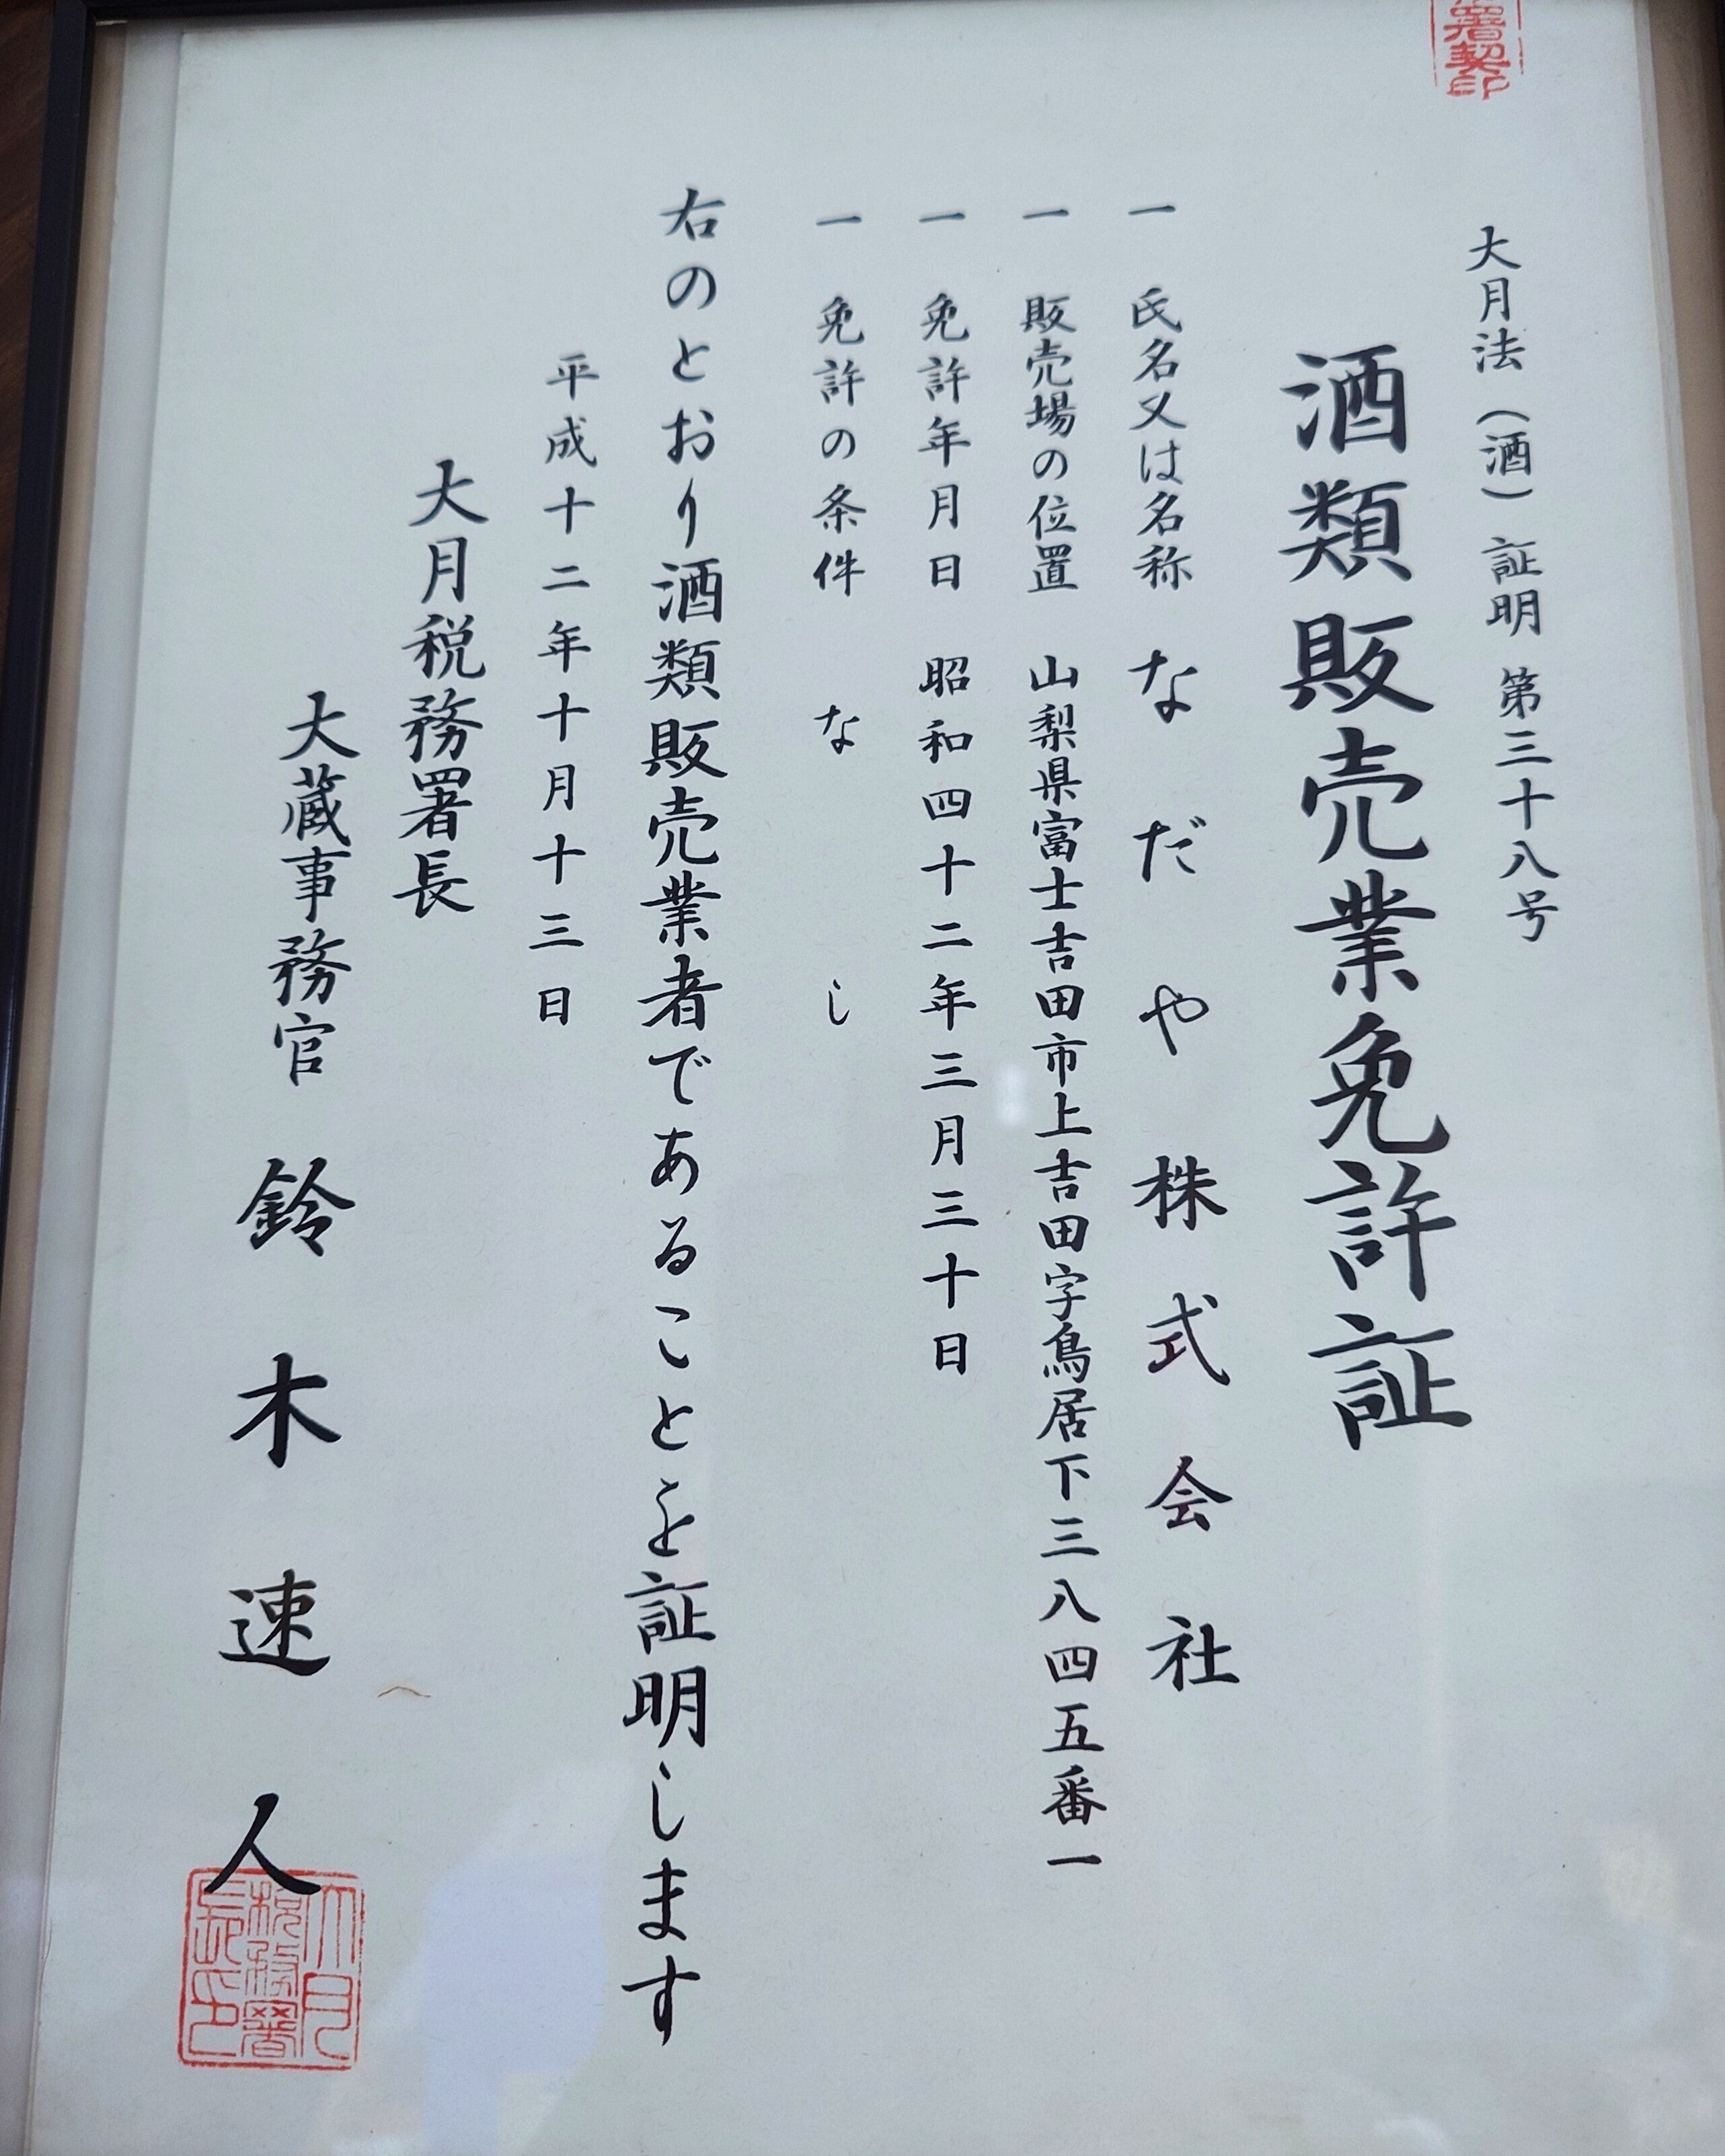 署契印
大月法（酒）証明 第三十八号
酒類販売業免許証
一 氏名又は名称 なだや株式会社
一 販売場の位置 山梨県富士吉田市上吉田字鳥居下三八四五番一
一 免許年月日 昭和四十二年三月三十日
一 免許の条件 なし
右のとおり酒類販売業者であることを証明します
平成十二年十月十三日
大月税務署長
大蔵事務官 鈴木速人
大月税務署長印